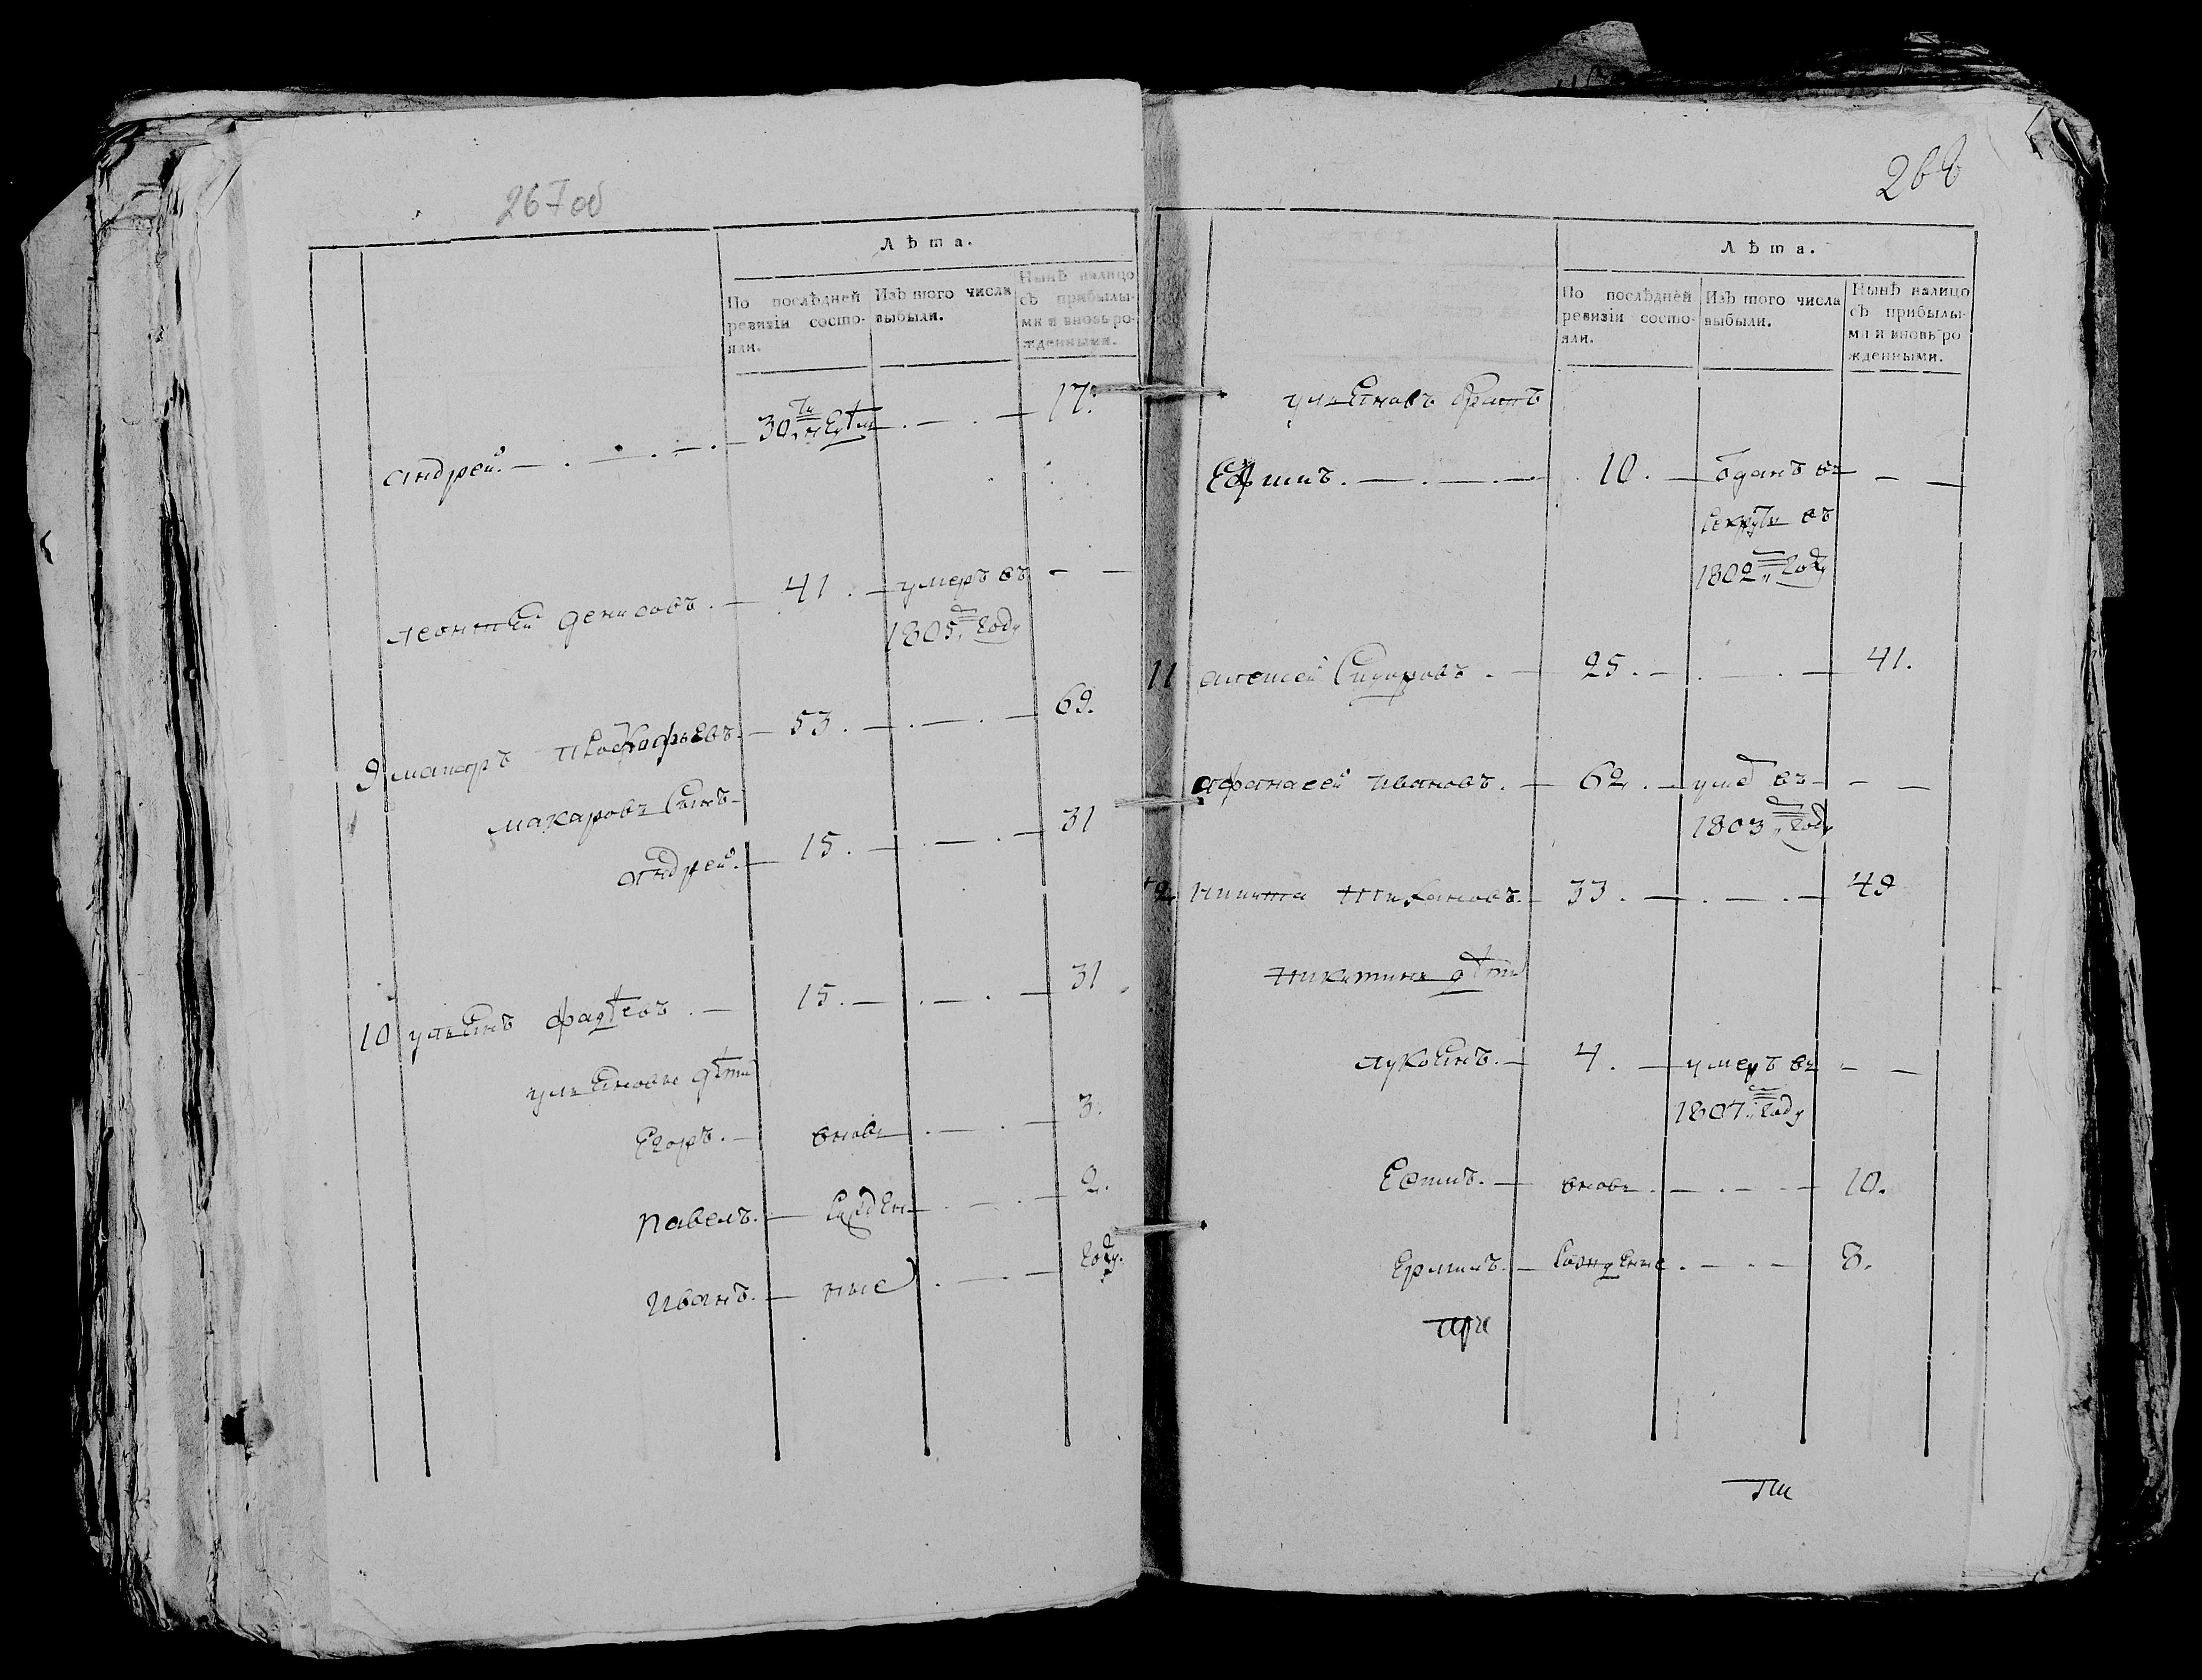 267об
Лѣта.
По послѣдней ревизіи состояли.
Изъ того числа выбыли.
Нынѣ налицо съ прибылыми и вновь рожденными.
андрей. 30ти недѣль 17.
леонтей денисовъ. 41. умеръ въ
1805м году
9 макаръ прокофьевъ. 53. 69.
макаровъ сынъ
андрей. 15. 31
10 ульянъ фадѣевъ. 15. 31
ульяновы дѣти
Егоръ. вновь 3.
павелъ. 2.
иванъ. ные году.
268
Лѣта.
По послѣдней ревизіи состояли.
Изъ того числа выбыли.
Нынѣ налицо съ прибылыми и вновь рожденными.
ульяновъ братъ
Ефимъ. 10. отданъ въ
рекруты въ
1802м году
11 алексей Сидоровъ. 25. 41.
афанасей ивановъ. 62. въ
1803м году
12 никита тихановъ. 33. 49
никитины дѣти
лукьянъ. 4. умеръ въ
1807м году
вновь 10.
Ермилъ. рожденные 8.
при